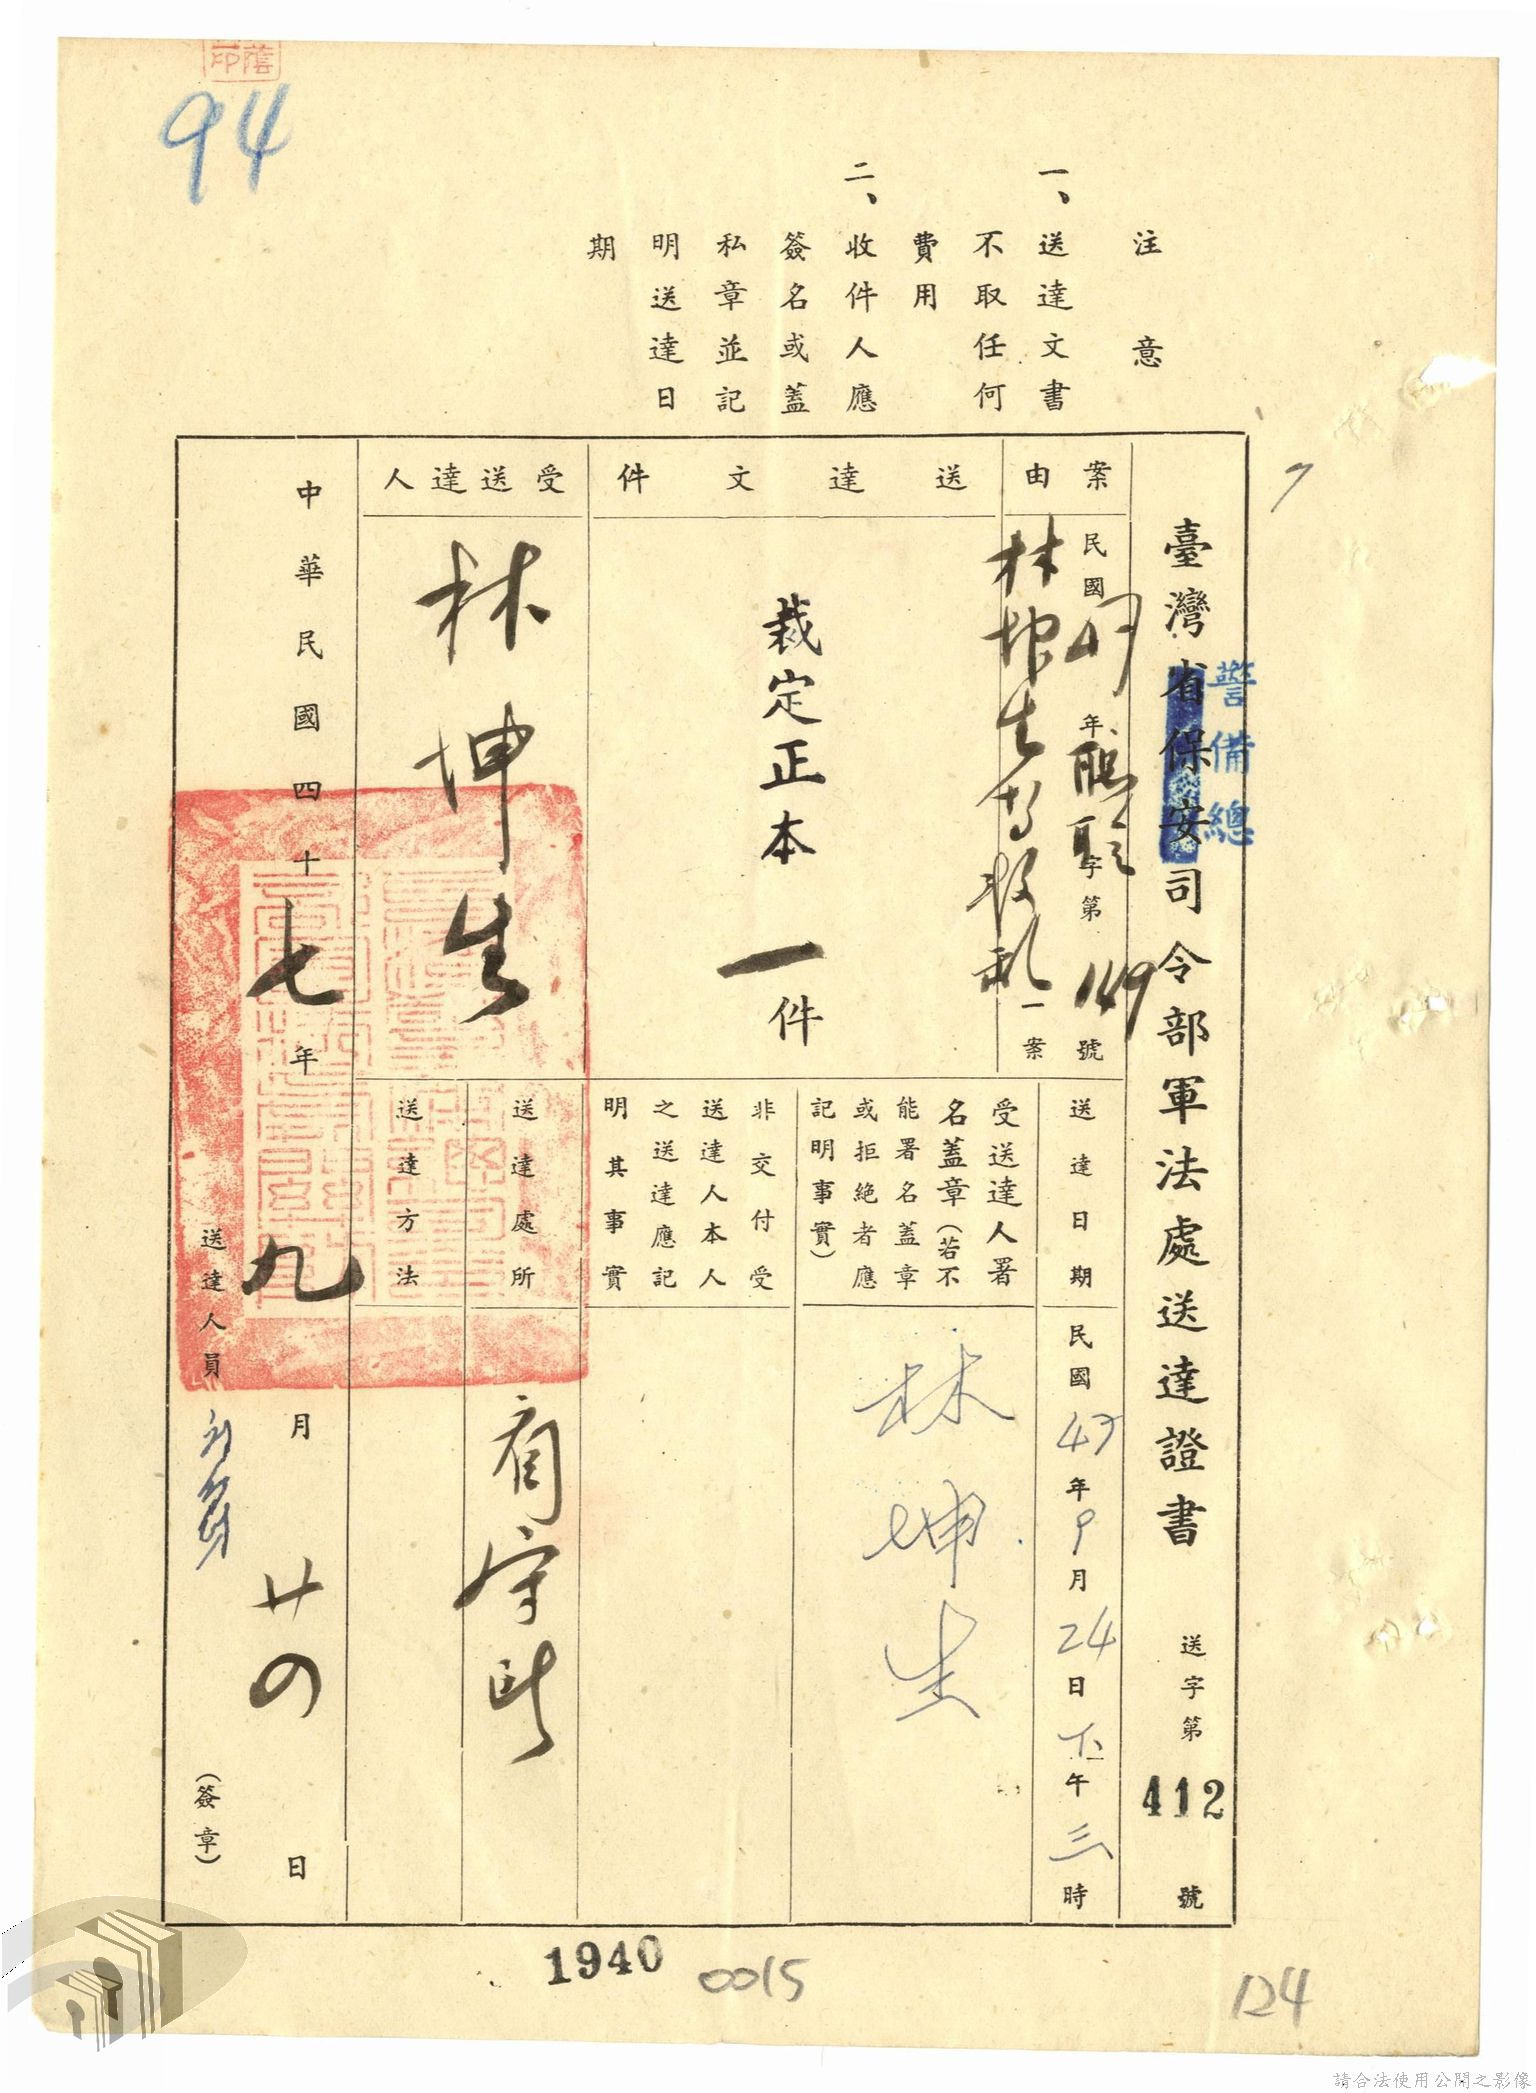 94
注意
一、送達文書
不取任何
費用
二、收件人應
簽名或蓋
私章並記
明送達日
期
臺灣省保安司令部軍法處送達證書
警備總
送字第412號
案由
民國47年聽字第149號
林坤生等叛亂一案
送達文件
裁定正本一件
受送達人
林坤生
送達日期
民國47年9月24日下午三時
受送達人署
名蓋章(若不
能署名蓋章
或拒絕者應
記明事實)
林坤生
非交付受
送達人本人
之送達應記
明其事實
送達處所
看守所
送達方法
中華民國四十七年九月廿四日
送達人員
(簽章)
1940
0015
124
請合法使用公開之影像